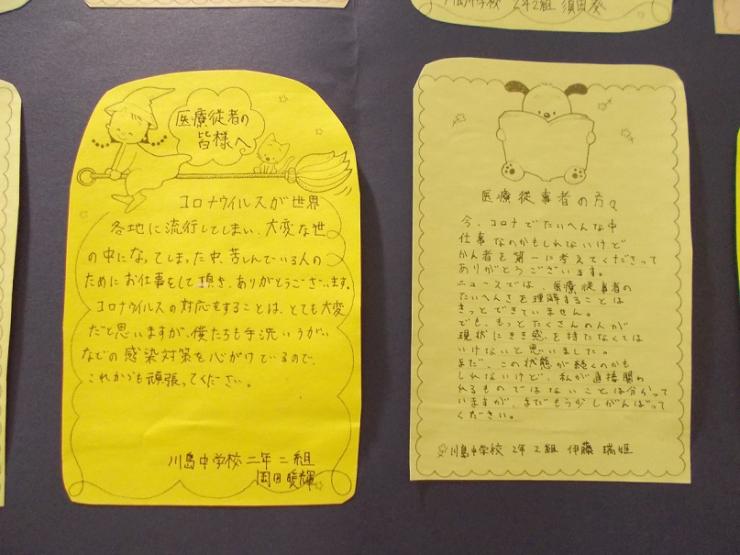 川島中学校 2年2組 須田葵
医療従者の
皆様へ
コロナウイルスが世界
各地に流行してしまい、大変な世
の中になってしまった中、苦しんでいる人の
ためにお仕事をして頂き、ありがとうございます。
コロナウイルスの対応をすることは、とても大変
だと思いますが、僕たちも手洗いうがい
などの感染対策を心がけているので、
これからも頑張ってください。
川島中学校 二年二組
岡田愛輝
医療従事者の方々
今、コロナでたいへんな中
仕事なのかもしれないけど
かん者を第一に考えてくださって
ありがとうございます。
ニュースでは、医療従事者の
たいへんさを理解することは
きっとできていません。
でも、もっとたくさんの人が
現状にきき感を持たなくては
いけないと思いました。
まだ、この状態が続くのかも
しれないけど、私が直接関わ
れるものではないことは分かって
いますが、まだもう少しがんばって
ください。
川島中学校 2年2組 伊藤 瑞姫